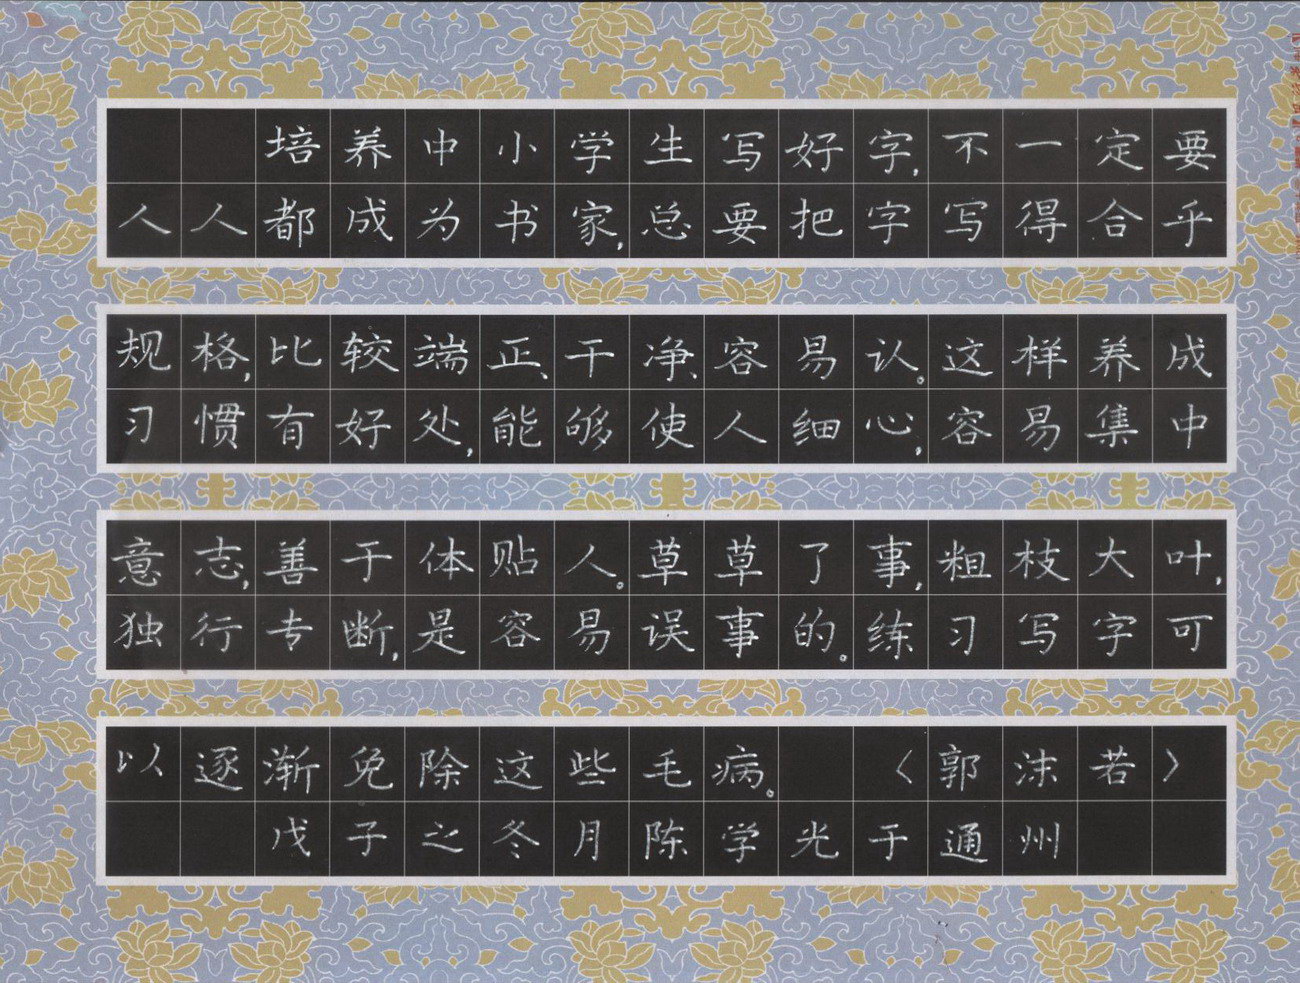 培养中小学生写好字,不一定要
人人都成为书家,总要把字写得合乎
规格,比较端正、干净、容易认。这样养成
习惯有好处,能够使人细心,容易集中
意志,善于体贴人。草草了事,粗枝大叶,
独行专断,是容易误事的。练习写字可
以逐渐免除这些毛病。〈郭沫若〉
戊子之冬月陈学光于通州